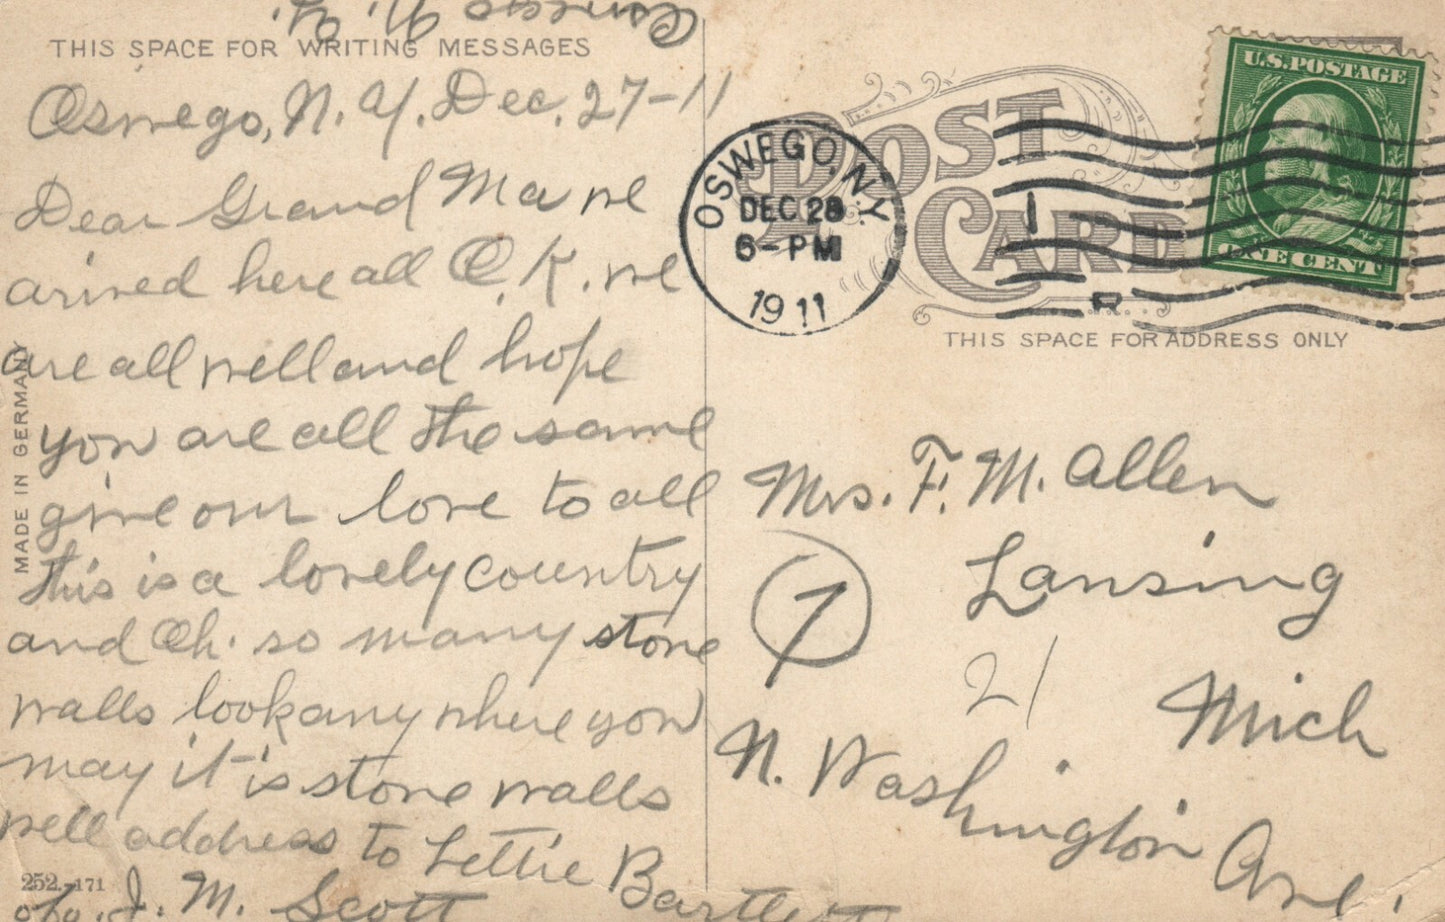 Oswego N. Y.
THIS SPACE FOR WRITING MESSAGES
Oswego, N. Y. Dec. 27-11
Dear Grand Ma we
arived here all O. K. we
are all well and hope
you are all the same
give our love to all
this is a lovely country
and Oh. so many stone
walls look any where you
may it is stone walls
well address to Lettie Bartlett
c/o. J. M. Scott
MADE IN GERMANY
252.-171
POST CARD
THIS SPACE FOR ADDRESS ONLY
OSWEGO, N.Y.
DEC 28
6-PM
1911
1
U.S. POSTAGE
ONE CENT
Mrs. F. M. Allen
Lansing
7
21
Mich
N. Washington Ave.